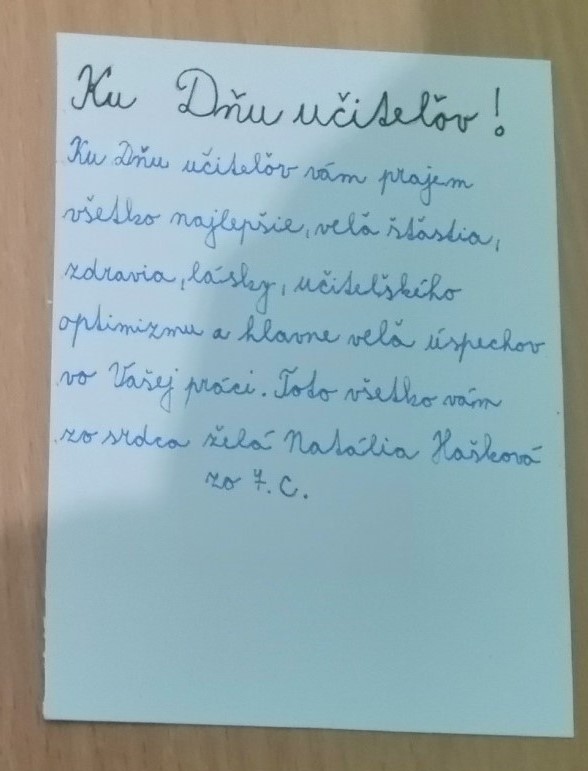 Ku Dňu učiteľov!
Ku Dňu učiteľov vám prajem
všetko najlepšie, veľa šťastia,
zdravia, lásky, učiteľského
optimizmu a hlavne veľa úspechov
vo Vašej práci. Toto všetko vám
zo srdca želá Natália Hašková
zo 7. C.